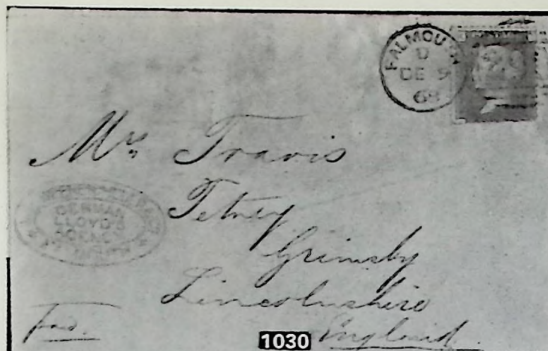 FALMOUTH
D
DE 9
68
Mrs Travis
Tetney
Grimsby
Lincolnshire
England
GERMAN
LLOYD'S
1030